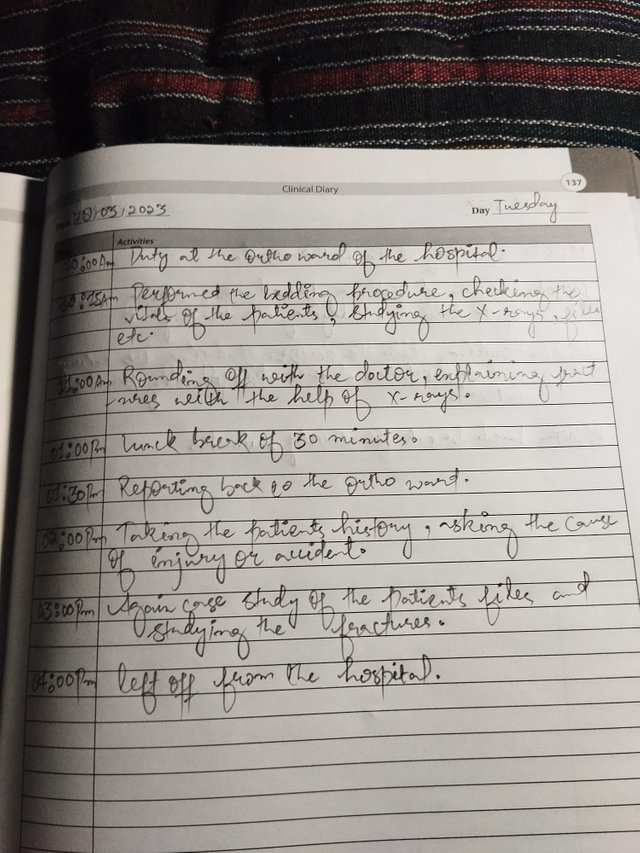 Clinical Diary
137
28/03/2023
Day Tuesday
Activities
10:00Am Duty at the ortho ward of the hospital.
10:15Am Performed the bedding procedure, checking the
vitals of the patients, studying the X-rays, files
etc.
11:00Am Rounding off with the doctor, explaining fract
ures with the help of X-rays.
01:00Pm Lunch break of 30 minutes.
01:30Pm Reporting back to the ortho ward.
02:00Pm Taking the patients history, asking the cause
of injury or accident.
03:00Pm Again case study of the patients files and
studying the fractures.
04:00Pm left off from the hospital.